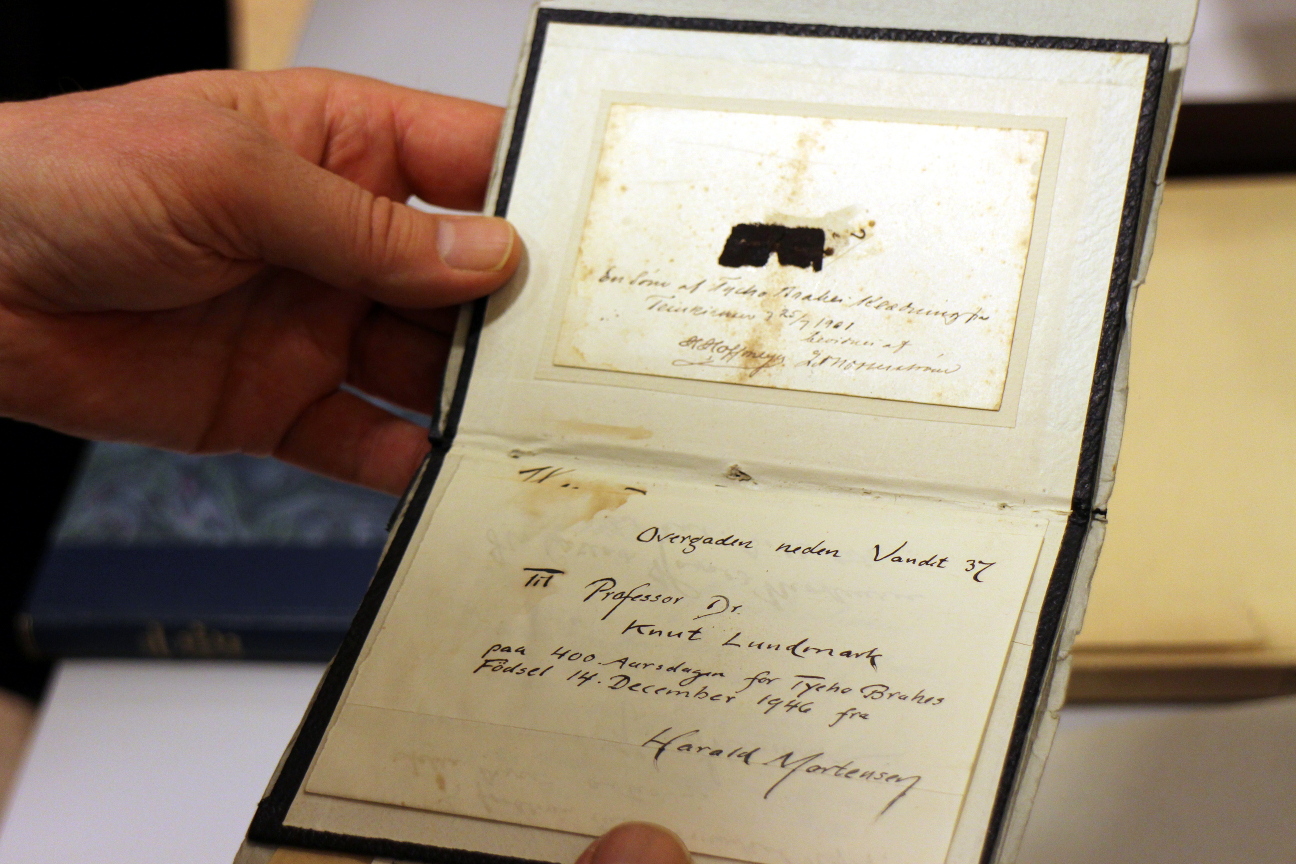 En Søm af Tycho Brahes Klædning fra
Teinkirken d 25/7 1901
H Hoffmeyer
Overgaden neden Vandet 37
Til Professor Dr.
Knut Lundmark
paa 400-Aarsdagen for Tycho Brahes
Födsel 14. December 1946 fra
Harald Mortensen